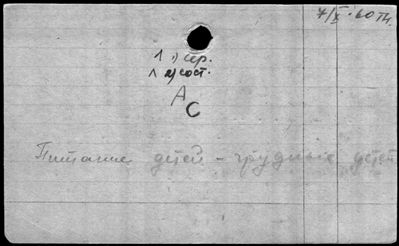 7/X - 60 Тн.
1 1) сер.
1 2) сост.
А
С
Питание детей - грудные дети